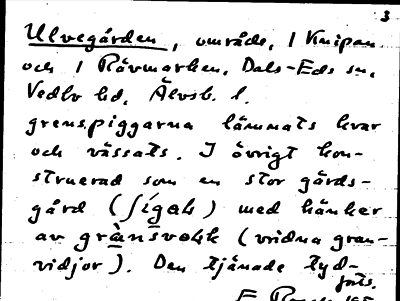 3
Ulvegården, område, i Knipan
och i Rävmarken, Dals-Eds sn,
Vedbo hd, Älvsb. l.
grenspiggarna lämnats kvar
och vässats. I övrigt kon-
struerad som en stor gärds-
gård (
) med hänker
av
(vridna gran-
vidjor). Den tjänade tyd-
forts.